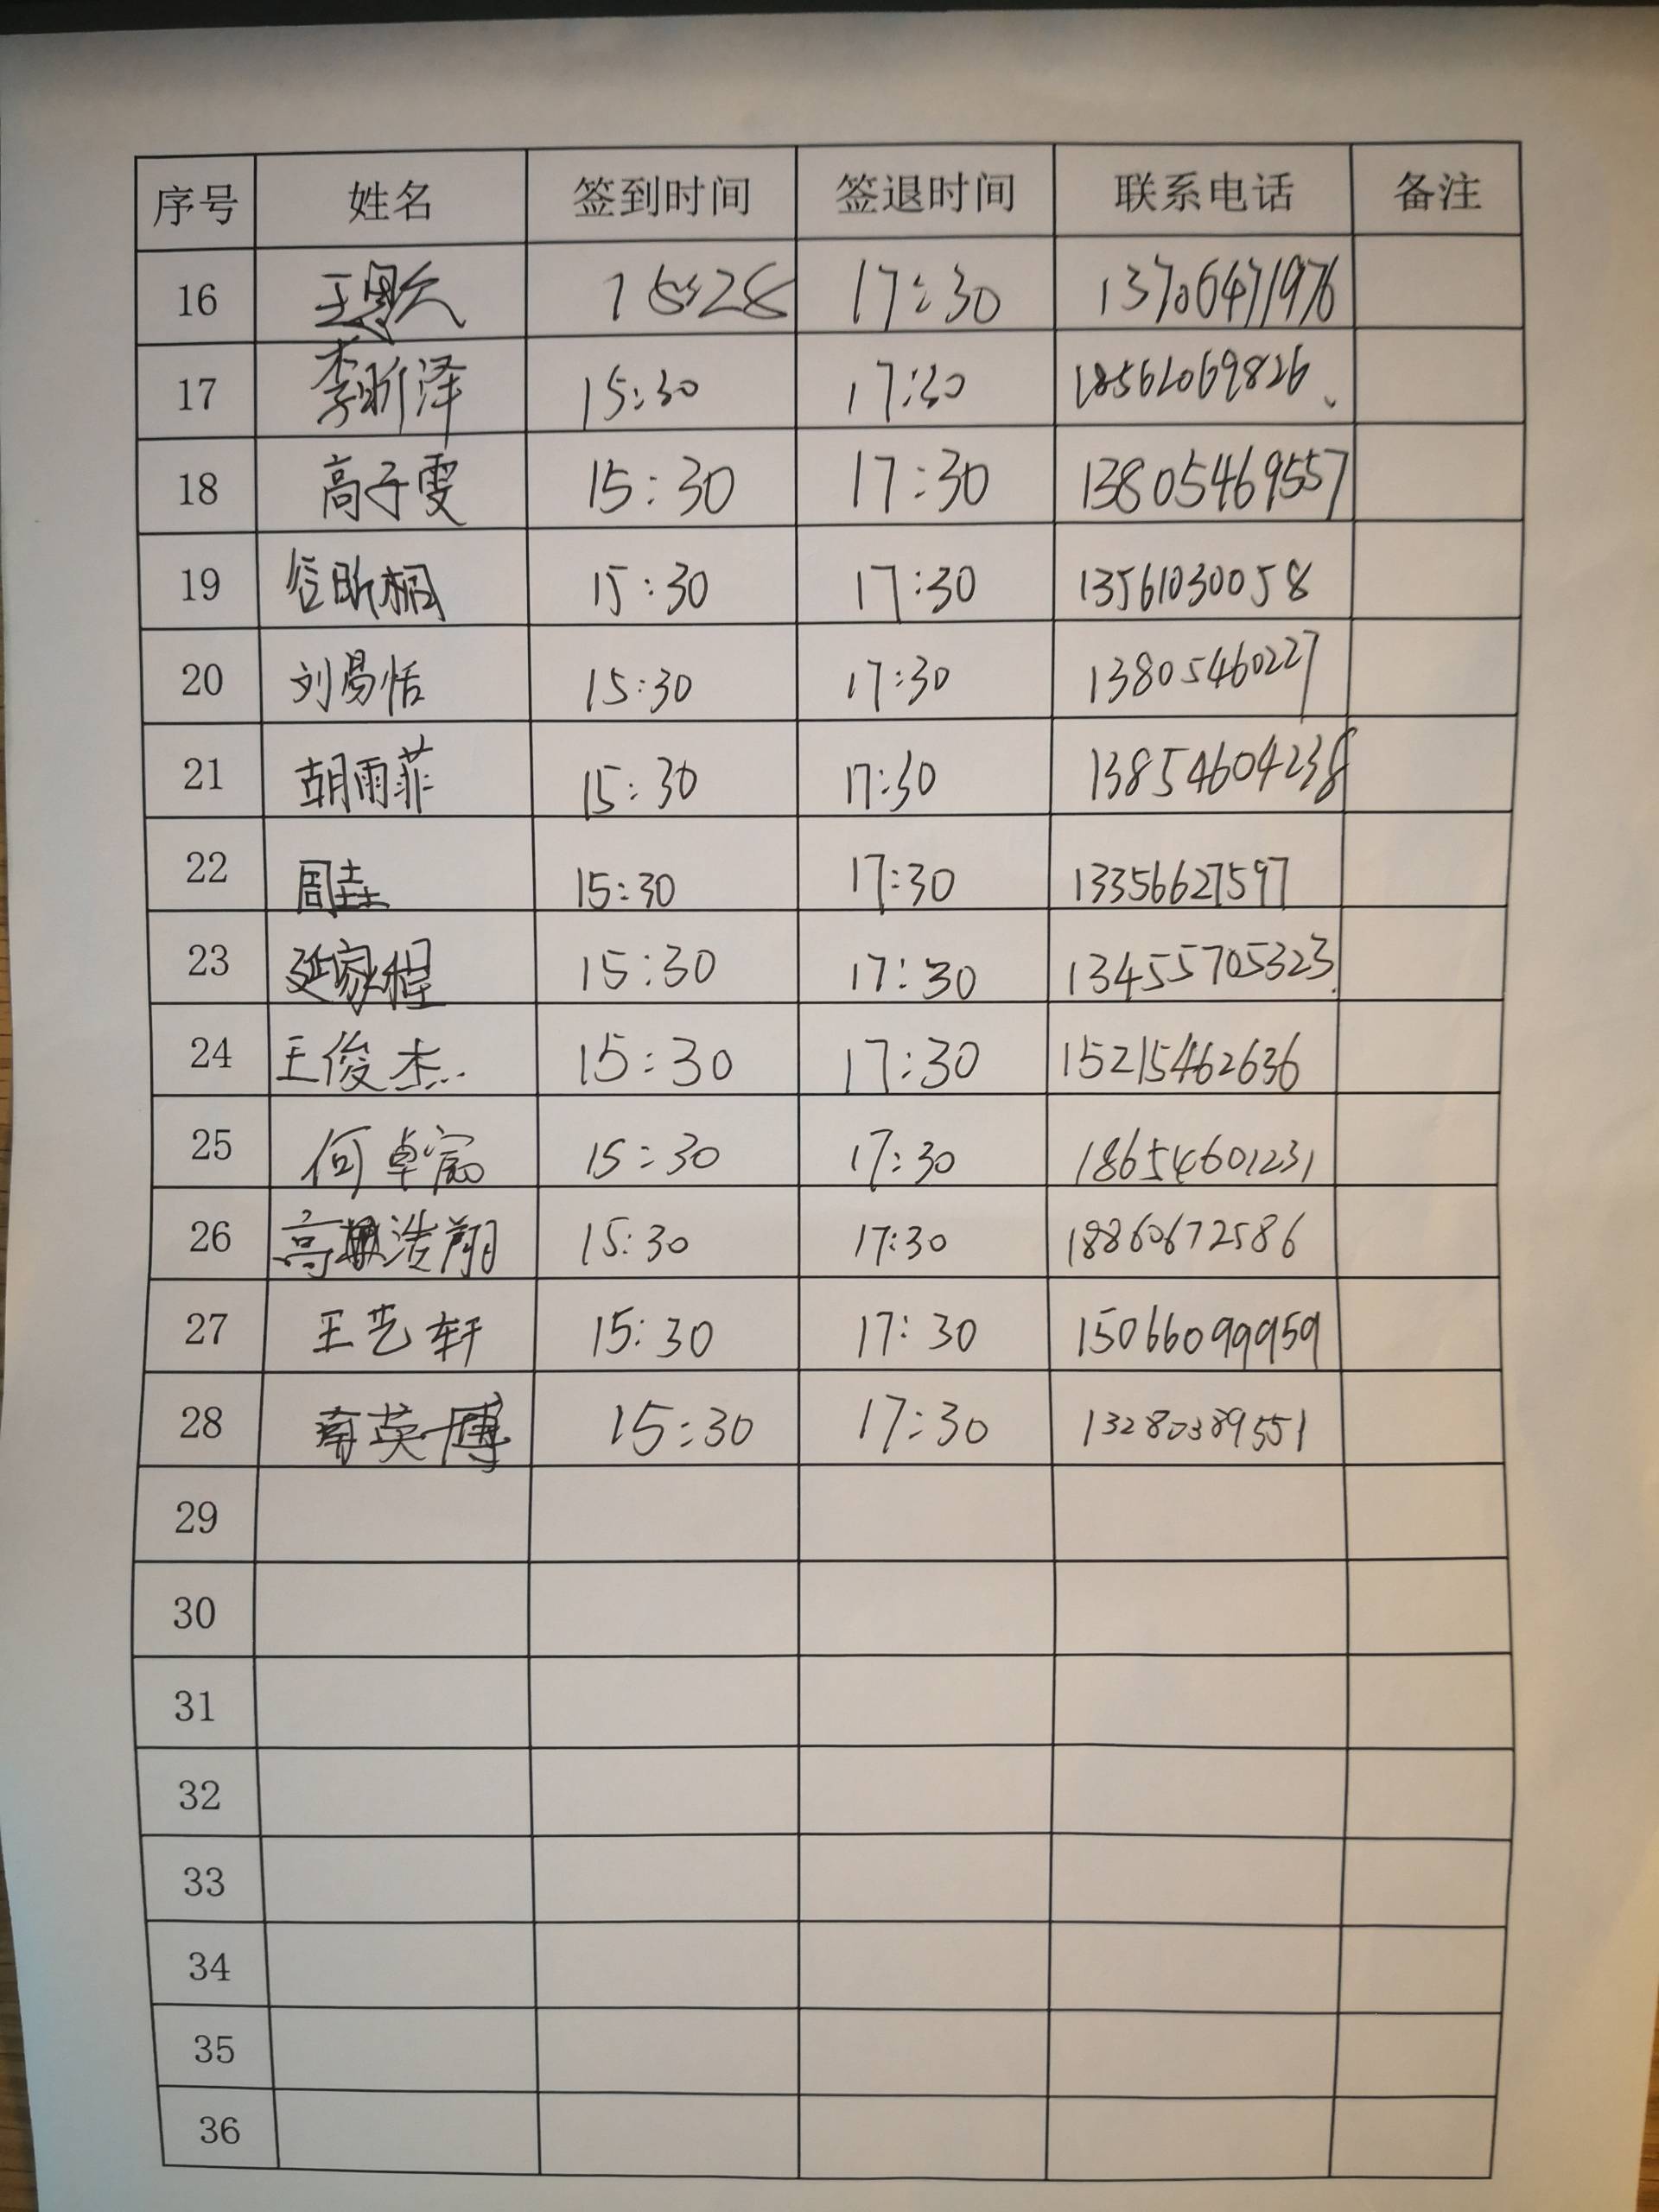 序号 姓名 签到时间 签退时间 联系电话 备注
16 王恩久 15:28 17:30 13706471976
17 李昕泽 15:30 17:30 18562069826
18 高子雯 15:30 17:30 13805469557
19 信昕桐 15:30 17:30 13561030058
20 刘易恬 15:30 17:30 13805460227
21 胡雨菲 15:30 17:30 13854604238
22 周垚 15:30 17:30 13356627597
23 延家程 15:30 17:30 13455705323
24 王俊杰 15:30 17:30 15215462636
25 何卓宸 15:30 17:30 18654601231
26 高浩翔 15:30 17:30 18860672586
27 王艺轩 15:30 17:30 15066099959
28 南英博 15:30 17:30 13280389551
29
30
31
32
33
34
35
36